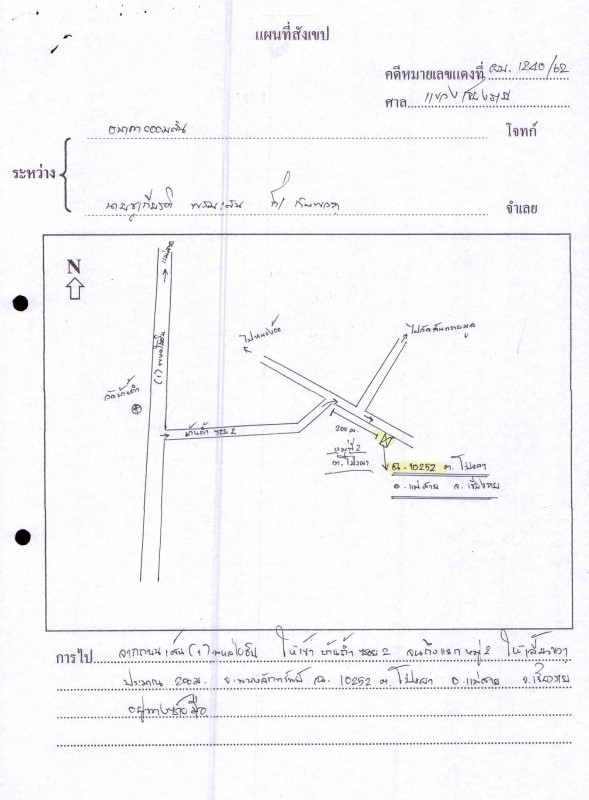 แผนที่สังเขป
คดีหมายเลขแดงที่ ผบ. 1240/62
ศาล แขวงเชียงราย
ธนาคารออมสิน โจทก์
ระหว่าง
นายชูเกียรติ จำเลย
N
ไปแม่สาย
(1) พหลโยธิน
วัดบ้านถ้ำ
บ้านถ้ำ ซอย 2
ไปหนองอ้อ
ไปวัดสันทรายมูล
200 ม.
หมู่ที่ 2
ต. โป่งผา
ฉ. 10252 ต. โป่งผา
อ. แม่สาย จ. เชียงราย
การไป จากถนนเส้น (1) พหลโยธิน ให้เข้า บ้านถ้ำ ซอย 2 จนถึงแยก หมู่ 2 ให้เลี้ยวขวา
ประมาณ 200 ม. จะพบหลักทรัพย์ ฉ. 10252 ต. โป่งผา อ. แม่สาย จ. เชียงราย
อยู่ทางซ้ายมือ